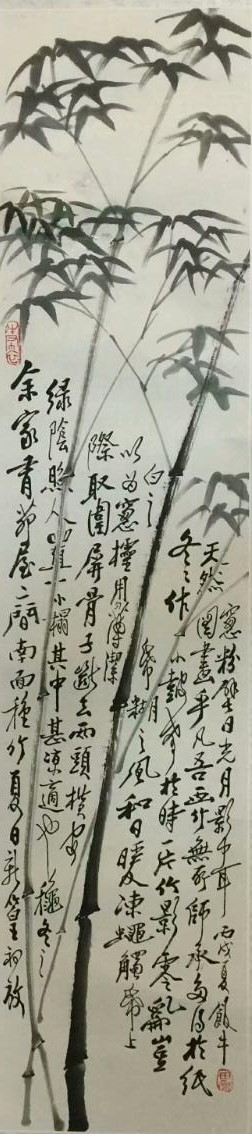 余家有茅屋二間南面種竹夏日新篁初放
綠陰照人置一小榻其中甚涼適也穐冬之
際取圍屏骨子斷去兩頭橫安
以為窻櫺用勻薄潔
白之帋糊之風和日暖凍蠅觸帋上
冬冬作小鼓聲於時一片竹影零亂豈
天然圖畫乎凡吾画竹無所師承多得於紙
窻粉壁日光月影中耳 丙戌夏飯牛